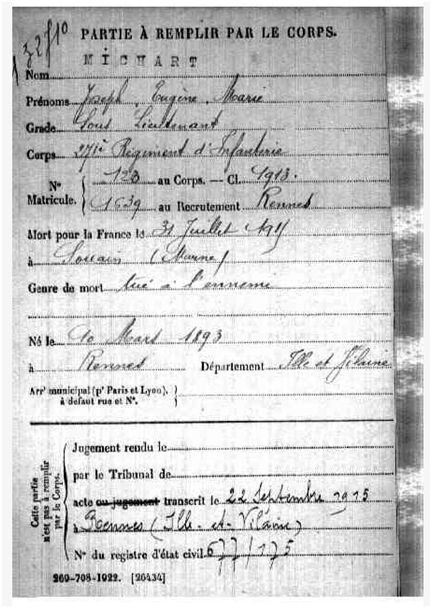 PARTIE À REMPLIR PAR LE CORPS.
MICHART
Nom
Prénoms Joseph, Eugène, Marie
Grade Sous Lieutenant
Corps 271e Régiment d'Infanterie
N° Matricule. 123 au Corps. — Cl. 1913.
1639 au Recrutement Rennes
Mort pour la France le 31 Juillet
à Souain (Marne)
Genre de mort tué à l'ennemi
Né le 10 Mars 1893
à Rennes Département Ille et Vilaine
Arrt municipal (pr Paris et Lyon),
à défaut rue et N°.
Cette partie n'est pas à remplir par le Corps.
Jugement rendu le
par le Tribunal de
acte ou jugement transcrit le 22 Septembre 1915
à Rennes (Ille-et-Vilaine)
N° du registre d'état civil 677/175
269-708-1922. [26434]